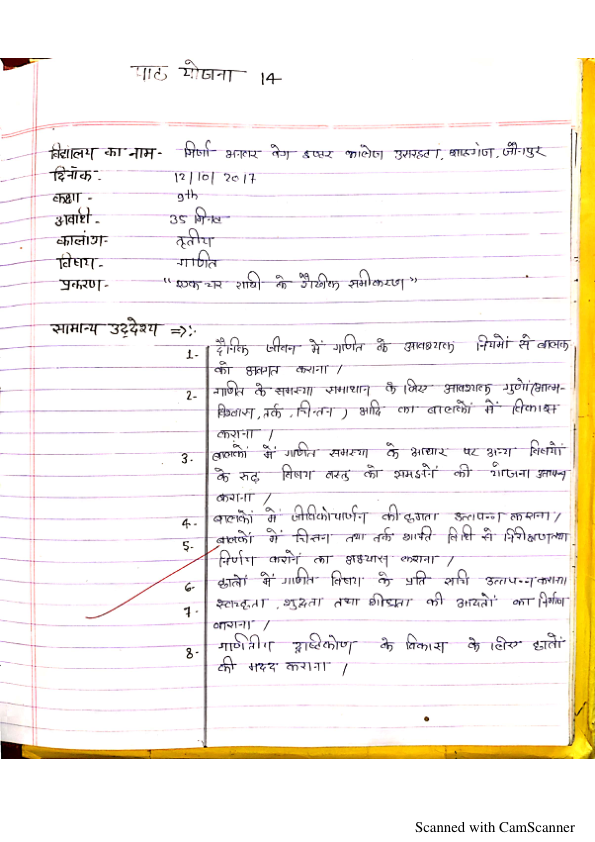 पाठ योजना 14
विद्यालय का नाम- मिर्जा अनवर बेग इण्टर कालेज उसरहटा, शाहगंज, जौनपुर
दिनाँक - 12/10/2017
कक्षा - 9th
अवधि - 35 मिनट
कालांश- तृतीय
विषय- गणित
प्रकरण- "एक चर राशी के रैखीक समीकरण"
सामान्य उद्देश्य =>:-
1- दैनिक जीवन में गणित के आवश्यक नियमों से बालक
को अवगत कराना /
2- गणित के समस्या समाधान के लिए आवश्यक गुणों (आत्म-
विश्वास, तर्क, चिन्तन) आदि का बालकों में विकास
कराना /
3- बालकों में गणित समस्या के आधार पर अन्य विषयों
के विषय वस्तु को समझने की
कराना /
4- बालकों में जीविकोपार्जन की क्षमता उत्पन्न कराना /
5- बालकों में चिन्तन तथा तर्क शक्ति विधि से निरीक्षण तथा
निर्णय कराने का अभ्यास कराना /
6- छात्रों में गणित विषय के प्रति रूचि उत्पन्न कराना
7- स्वच्छता, शुद्धता तथा शीघ्रता की आदतों का निर्माण
कराना /
8- गणितीय दृष्टिकोण के विकास के लिए छात्रों
की मदद कराना /
Scanned with CamScanner